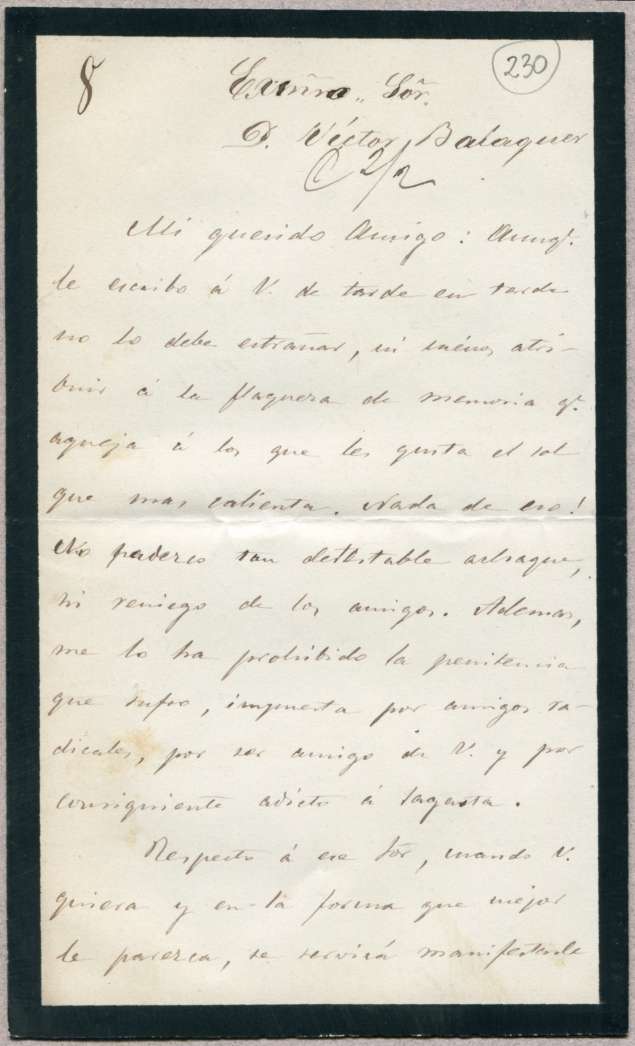 8
230
Exmo. Sor.
D. Víctor Balaguer
C 2/2
Mi querido Amigo: Aunq.
le escribo á V. de tarde en tarde
no lo debe estrañar, ni ménos atri-
buir á la flaqueza de memoria q.
aqueja á los que les gusta el sol
que mas calienta. Nada de eso!
No padezco tan detestable achaque,
ni reniego de los amigos. Ademas,
me lo ha prohibido la penitencia
que sufro, impuesta por amigos ra-
dicales, por ser amigo de V. y por
consiguiente adicto á Sagasta.
Respecto á ese Sor, cuando V.
quiera y en la forma que mejor
le parezca, se servirá manifestarle